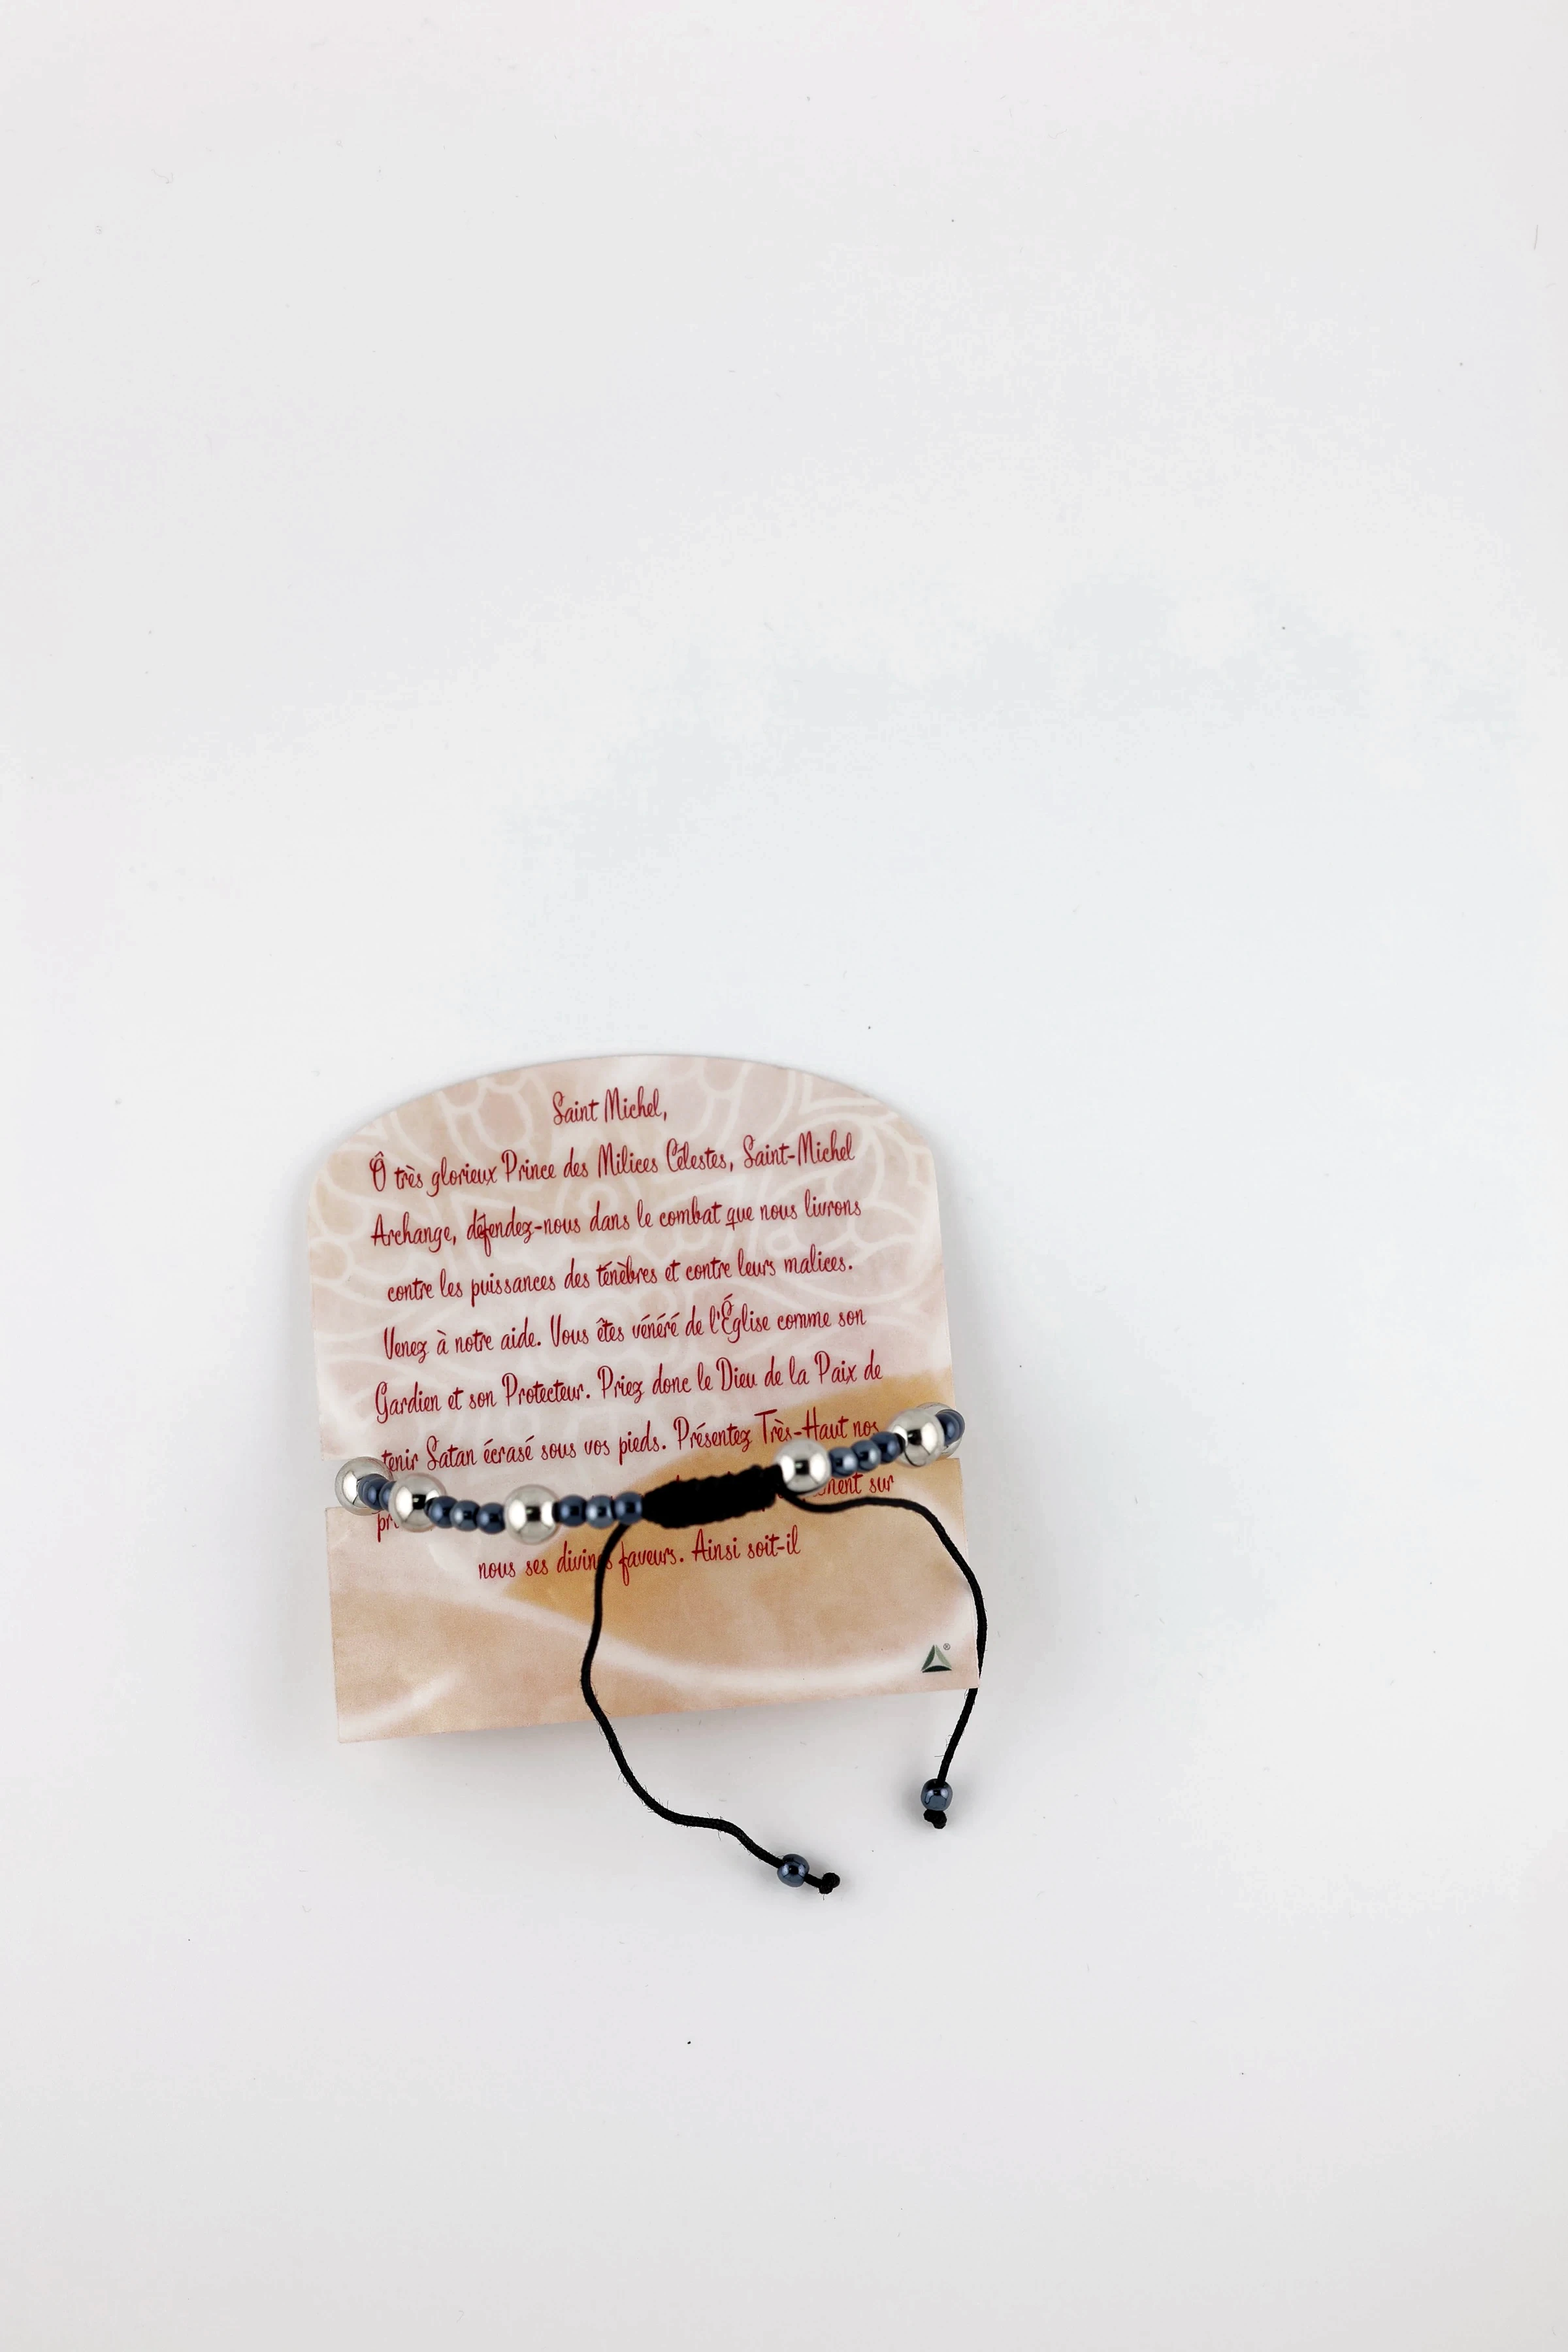 Saint Michel,
Ô très glorieux Prince des Milices Célestes, Saint-Michel
Archange, défendez-nous dans le combat que nous livrons
contre les puissances des ténèbres et contre leurs malices.
Venez à notre aide. Vous êtes vénéré de l'Église comme son
Gardien et son Protecteur. Priez donc le Dieu de la Paix de
tenir Satan écrasé sous vos pieds. Présentez Très-Haut nos
sur
nous ses divines faveurs. Ainsi soit-il
®